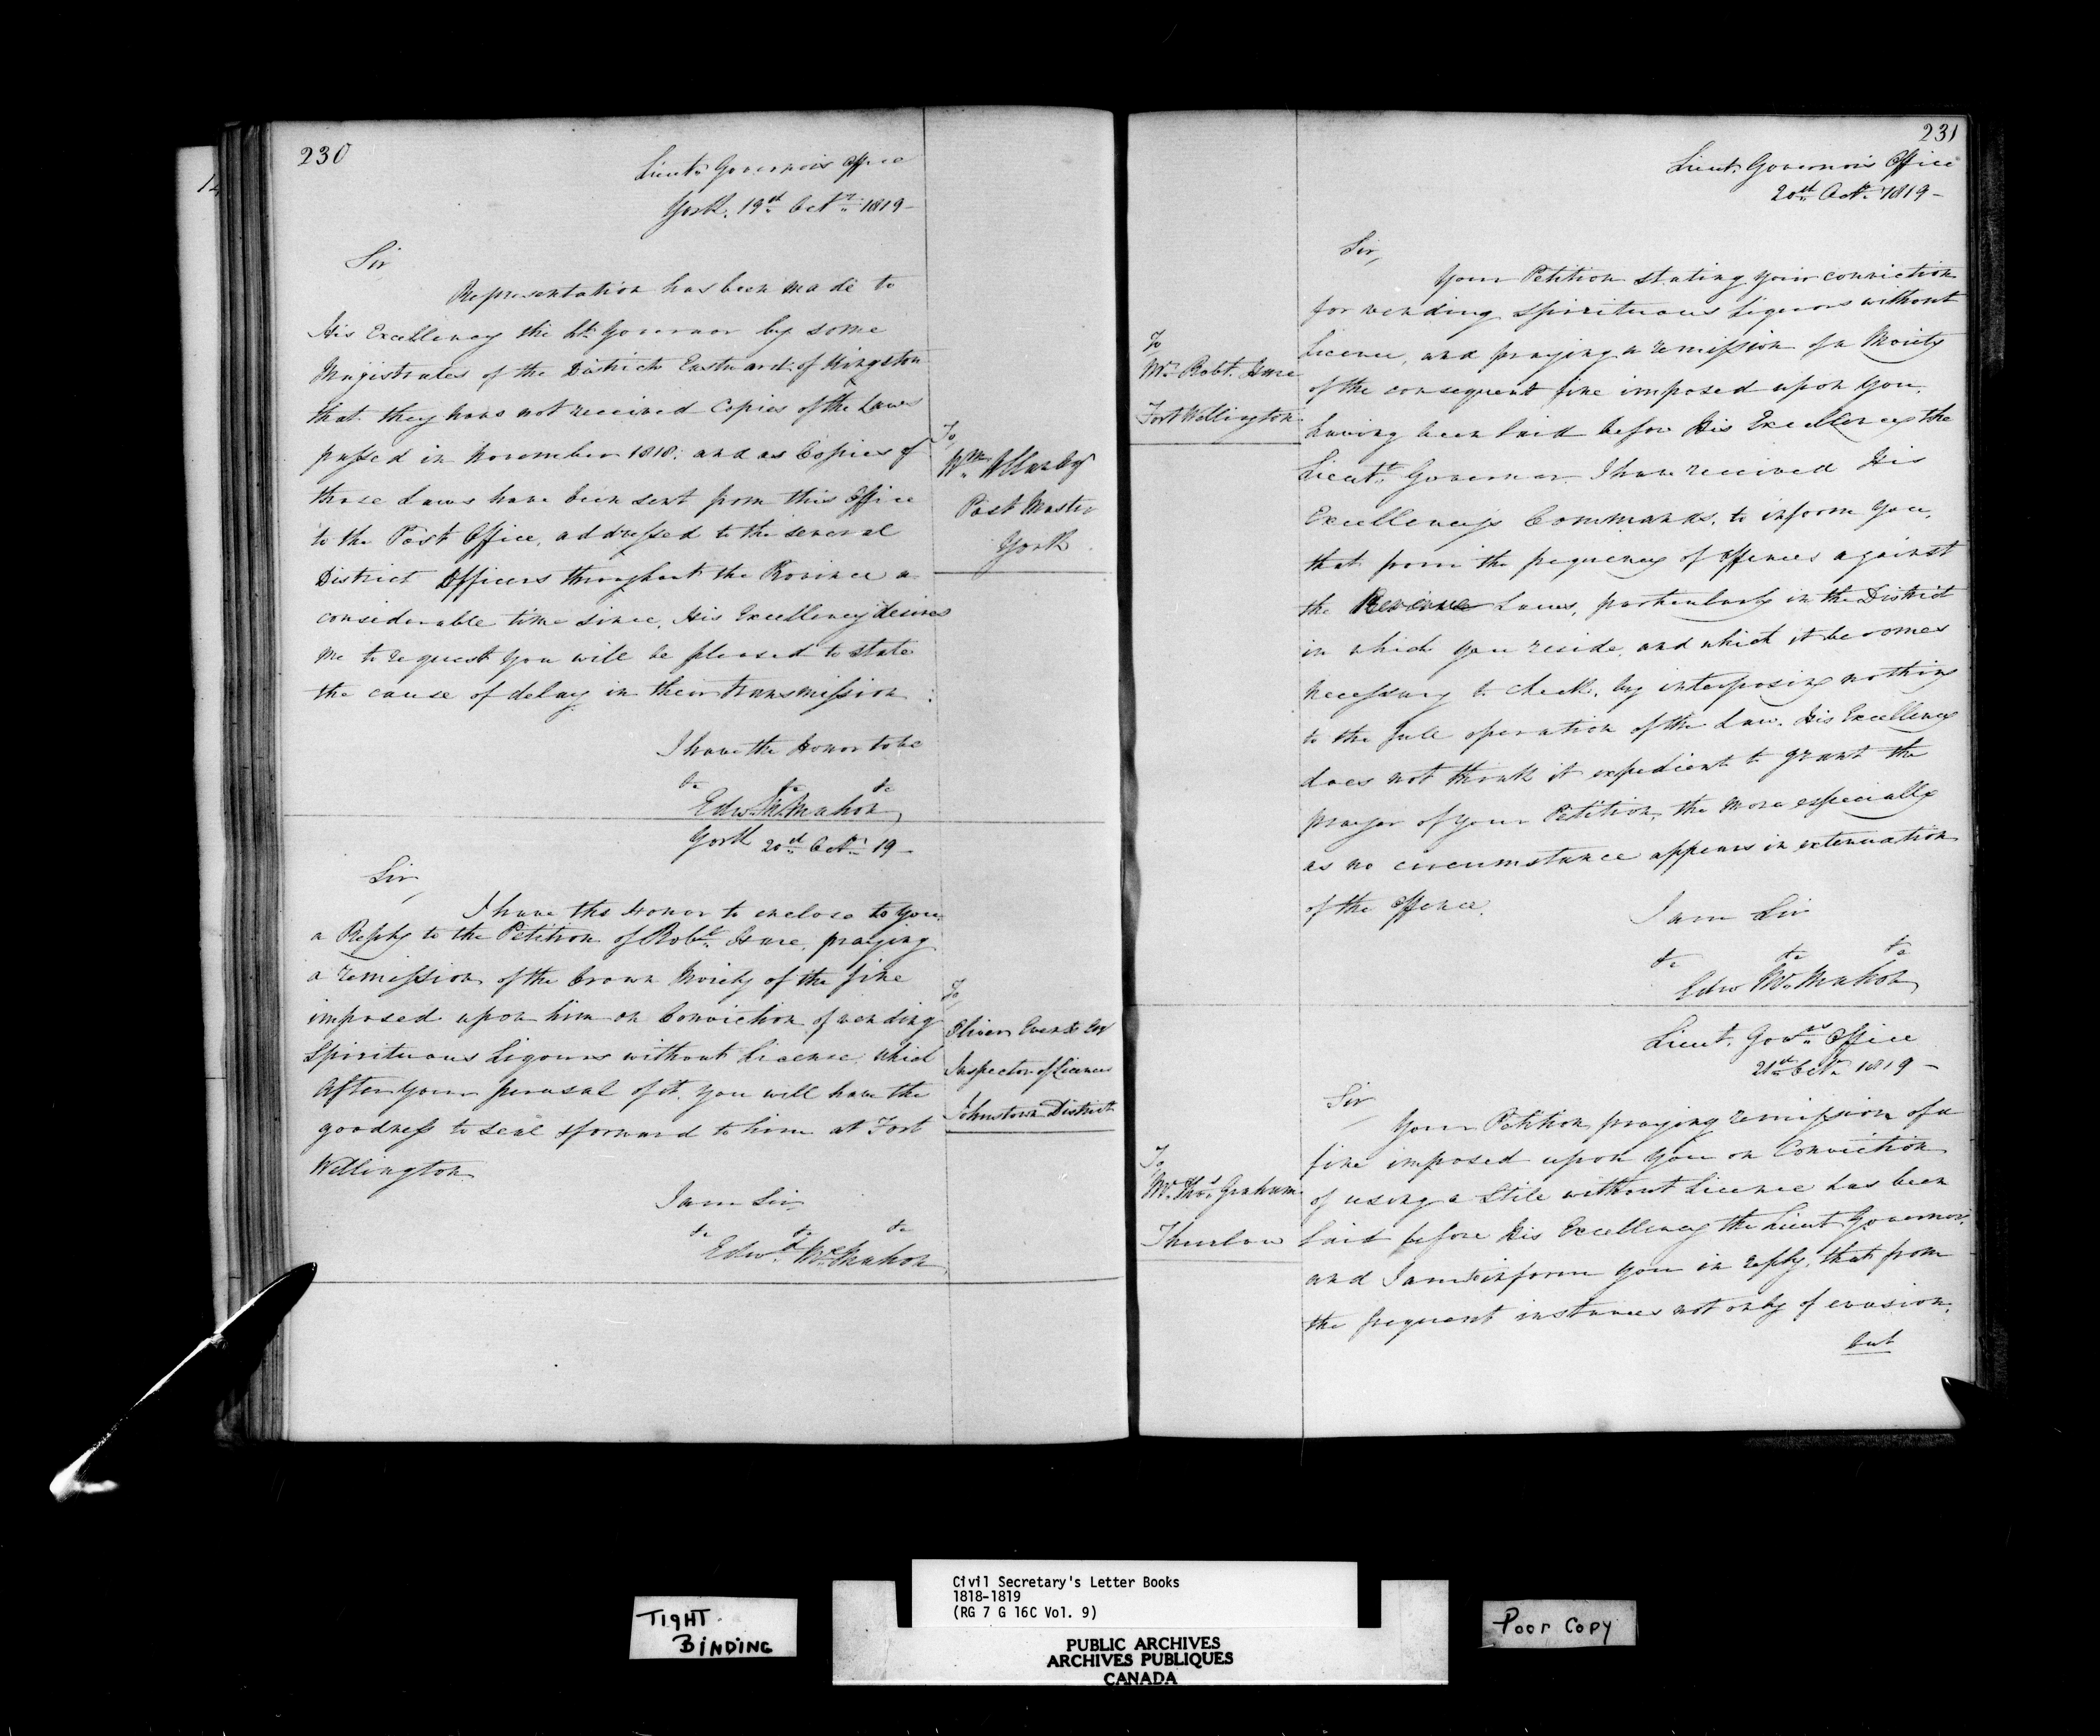 230
Lieut. Governor's Office
York, 19th Octr. 1819 -
Sir
Representation has been made to
His Excellency the Lt. Governor by some
Magistrates of the Districts Eastward of Kingston
that they have not received Copies of the Laws
passed in November 1818: and as Copies of
those Laws have been sent from this Office
to the Post Office, addressed to the several
District Officers throughout the Province a
considerable time since, His Excellency desires
me to request you will be pleased to state
the cause of delay in their transmission.
I have the Honor to be
&c &c &c
Edwd. McMahon
To
Wm. Allan Esqr
Post Master
York
York 20th Octr. 19 -
Sir,
I have the Honor to enclose to you
a Reply to the Petition of Robt. praying
a remission of the Crown Moiety of the fine
imposed upon him on Conviction of vending
Spirituous Liquors without License, which
After your perusal of it, you will have the
goodness to seal & forward to him at Fort
Wellington
I am Sir
&c &c &c
Edwd. McMahon
To
Oliver Everts Esqr
Inspector of Licenses
Johnstown District
231
Lieut. Governor's Office
20th Octr. 1819 -
Sir,
Your Petition stating your conviction
for vending Spirituous Liquors without
Licence, and praying a remission of a Moiety
of the consequent fine imposed upon you,
having been laid before His Excellency the
Lieutt. Governor I have received His
Excellency's Commands, to inform you,
that from the frequency of offences against
the Revenue Laws, particularly in the District
in which you reside, and which it becomes
necessary to check, by interposing nothing
to the full operation of the Law. His Excellency
does not think it expedient to grant the
prayer of your Petition, the more especially
as no circumstance appears in extenuation
of the offence.
I am Sir
&c &c &c
Edwd McMahon
To
Mr. Robt.
Fort Wellington
Lieut. Govrs. Office
21st Octr. 1819 -
Sir
Your Petition praying remission of a
fine imposed upon you on Conviction
of using a Still without Licence has been
laid before His Excellency the Lieut Governor,
and I am to inform you in reply, that from
the frequent instances not only of evasion,
but
To
Mr. Thos. Graham
Thurlow
TIGHT
BINDING
Civil Secretary's Letter Books
1818-1819
(RG 7 G 16C Vol. 9)
PUBLIC ARCHIVES
ARCHIVES PUBLIQUES
CANADA
Poor Copy